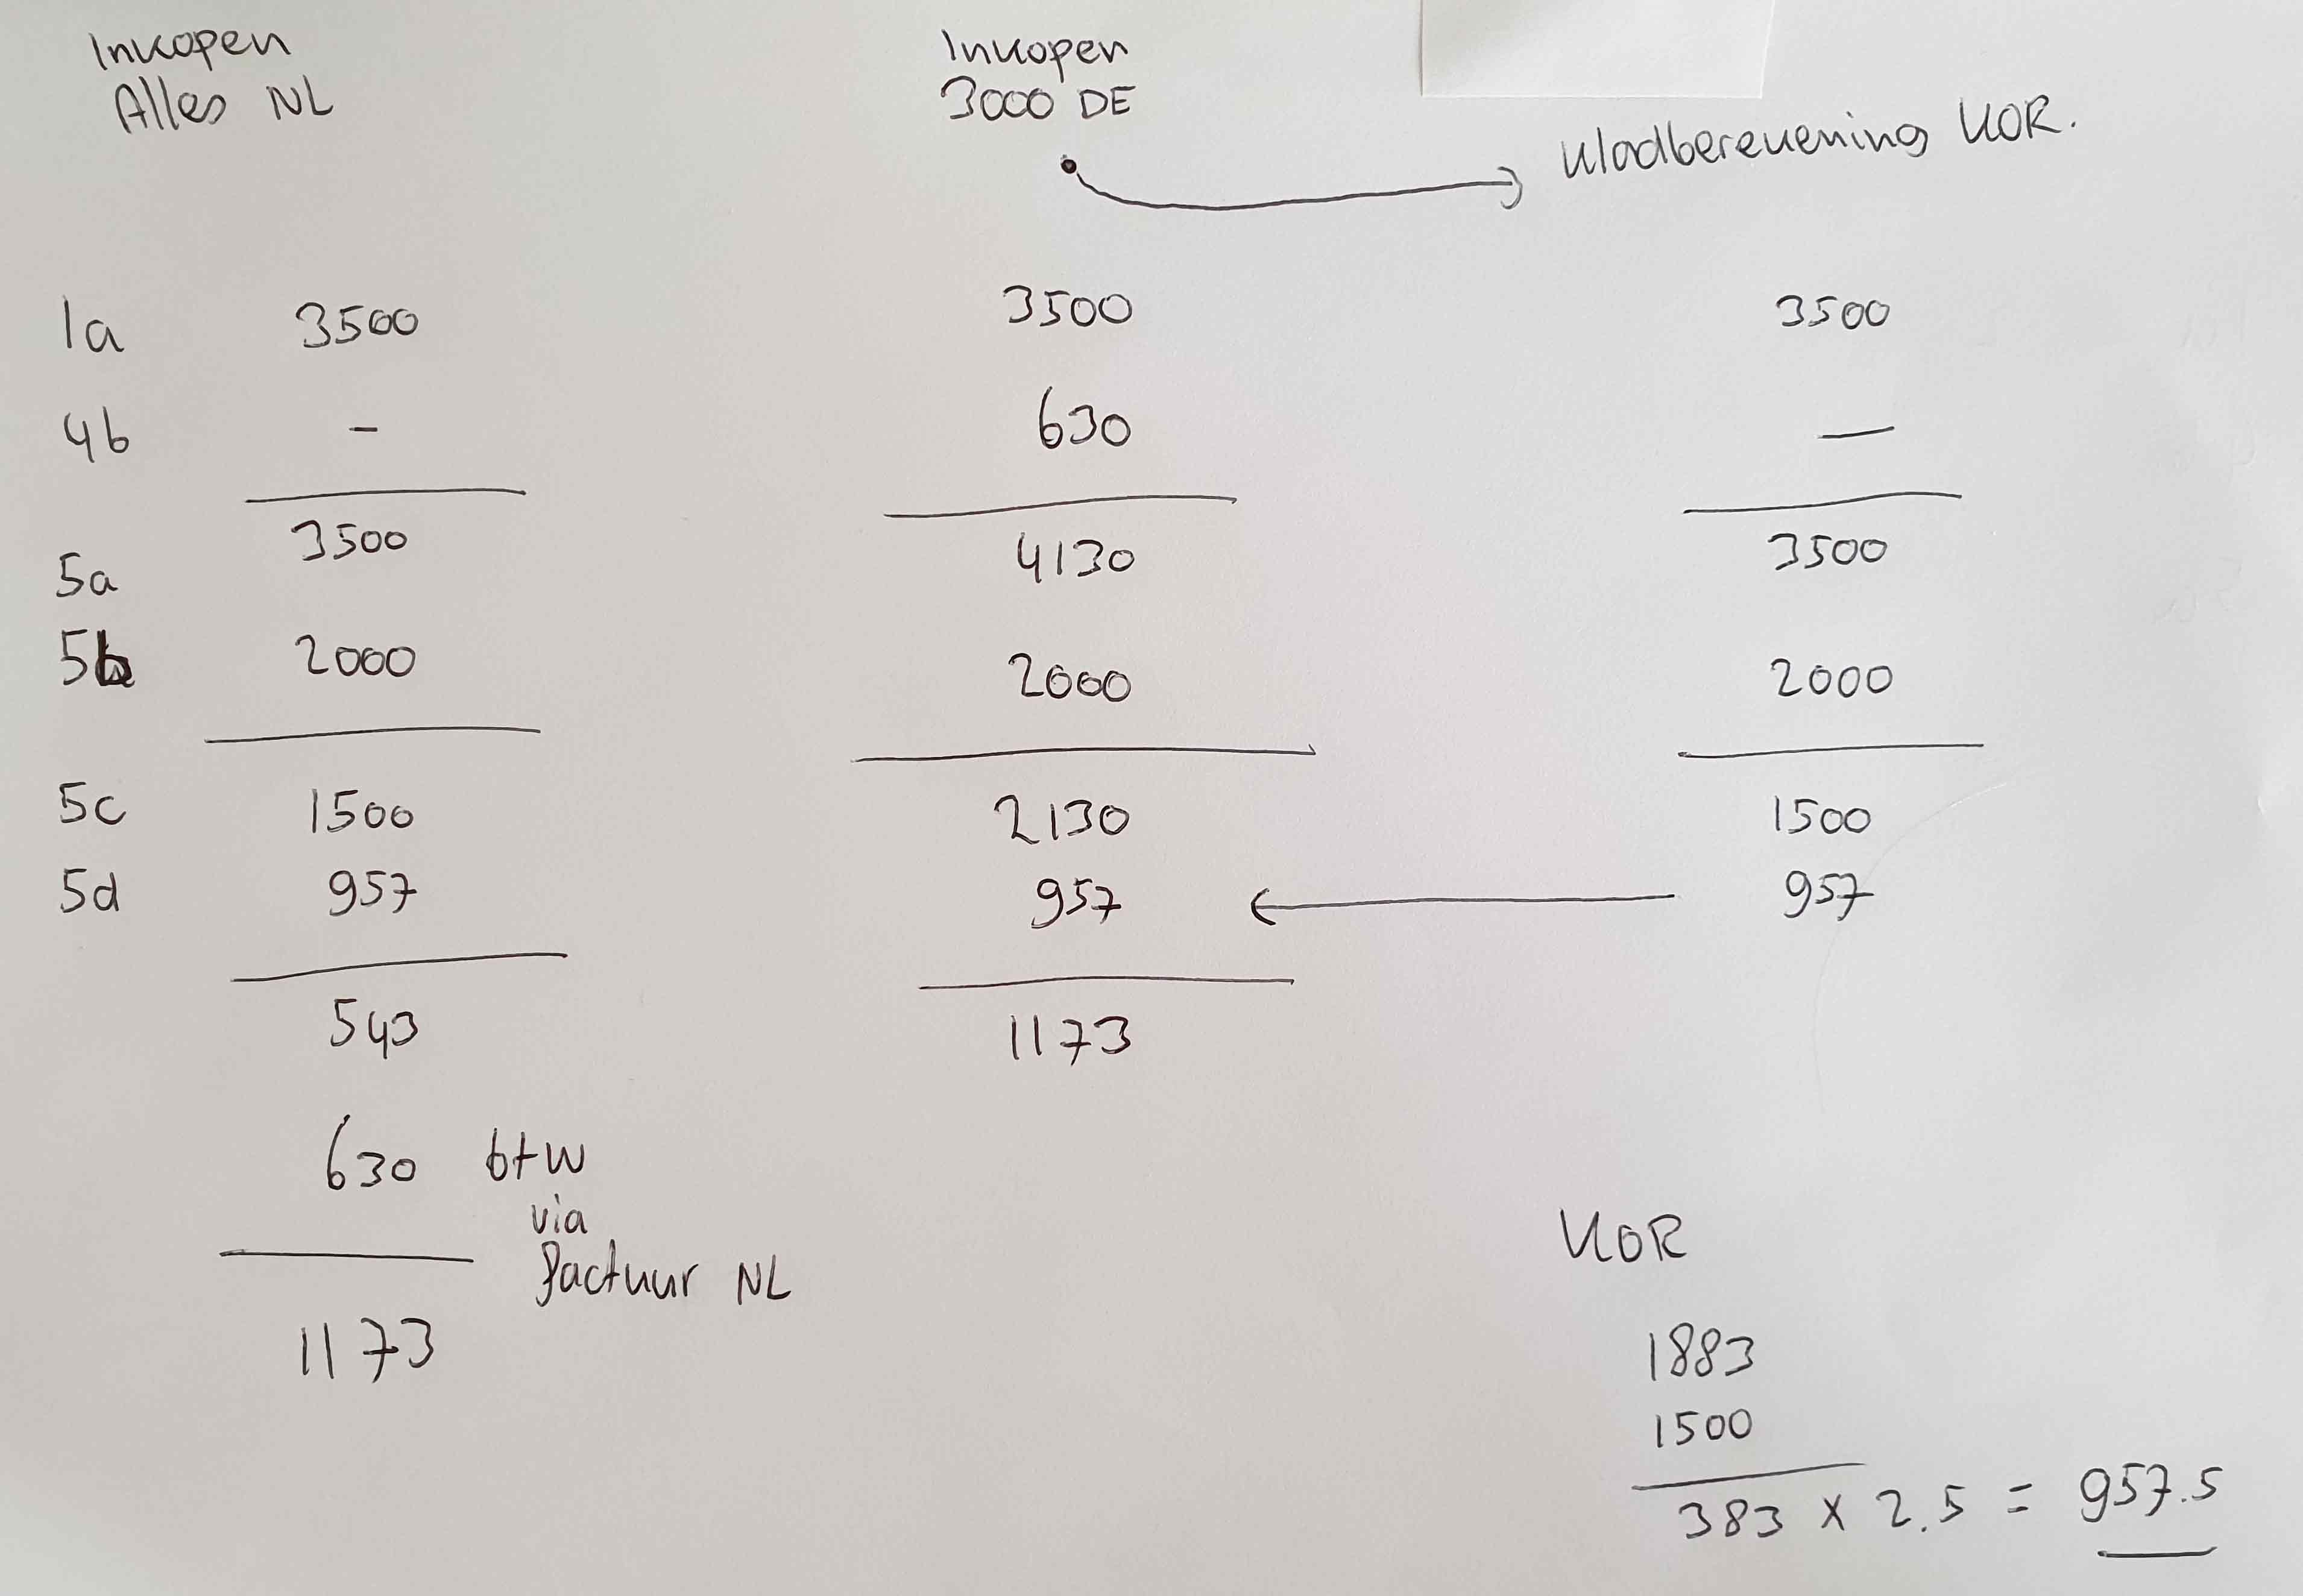 Inkopen
Alles NL
Inkopen
3000 DE
Kladberekening KOR.
1a 3500 3500 3500
4b - 630 —
5a 3500 4130 3500
5b 2000 2000 2000
5c 1500 2130 1500
5d 957 957 957
543 1173
630 btw
via
factuur NL
1173
KOR
1883
1500
383 x 2.5 = 957.5